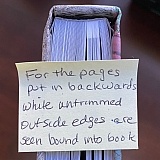 For the pages
put in backwards
while untrimmed
outside edges are
seen bound into book